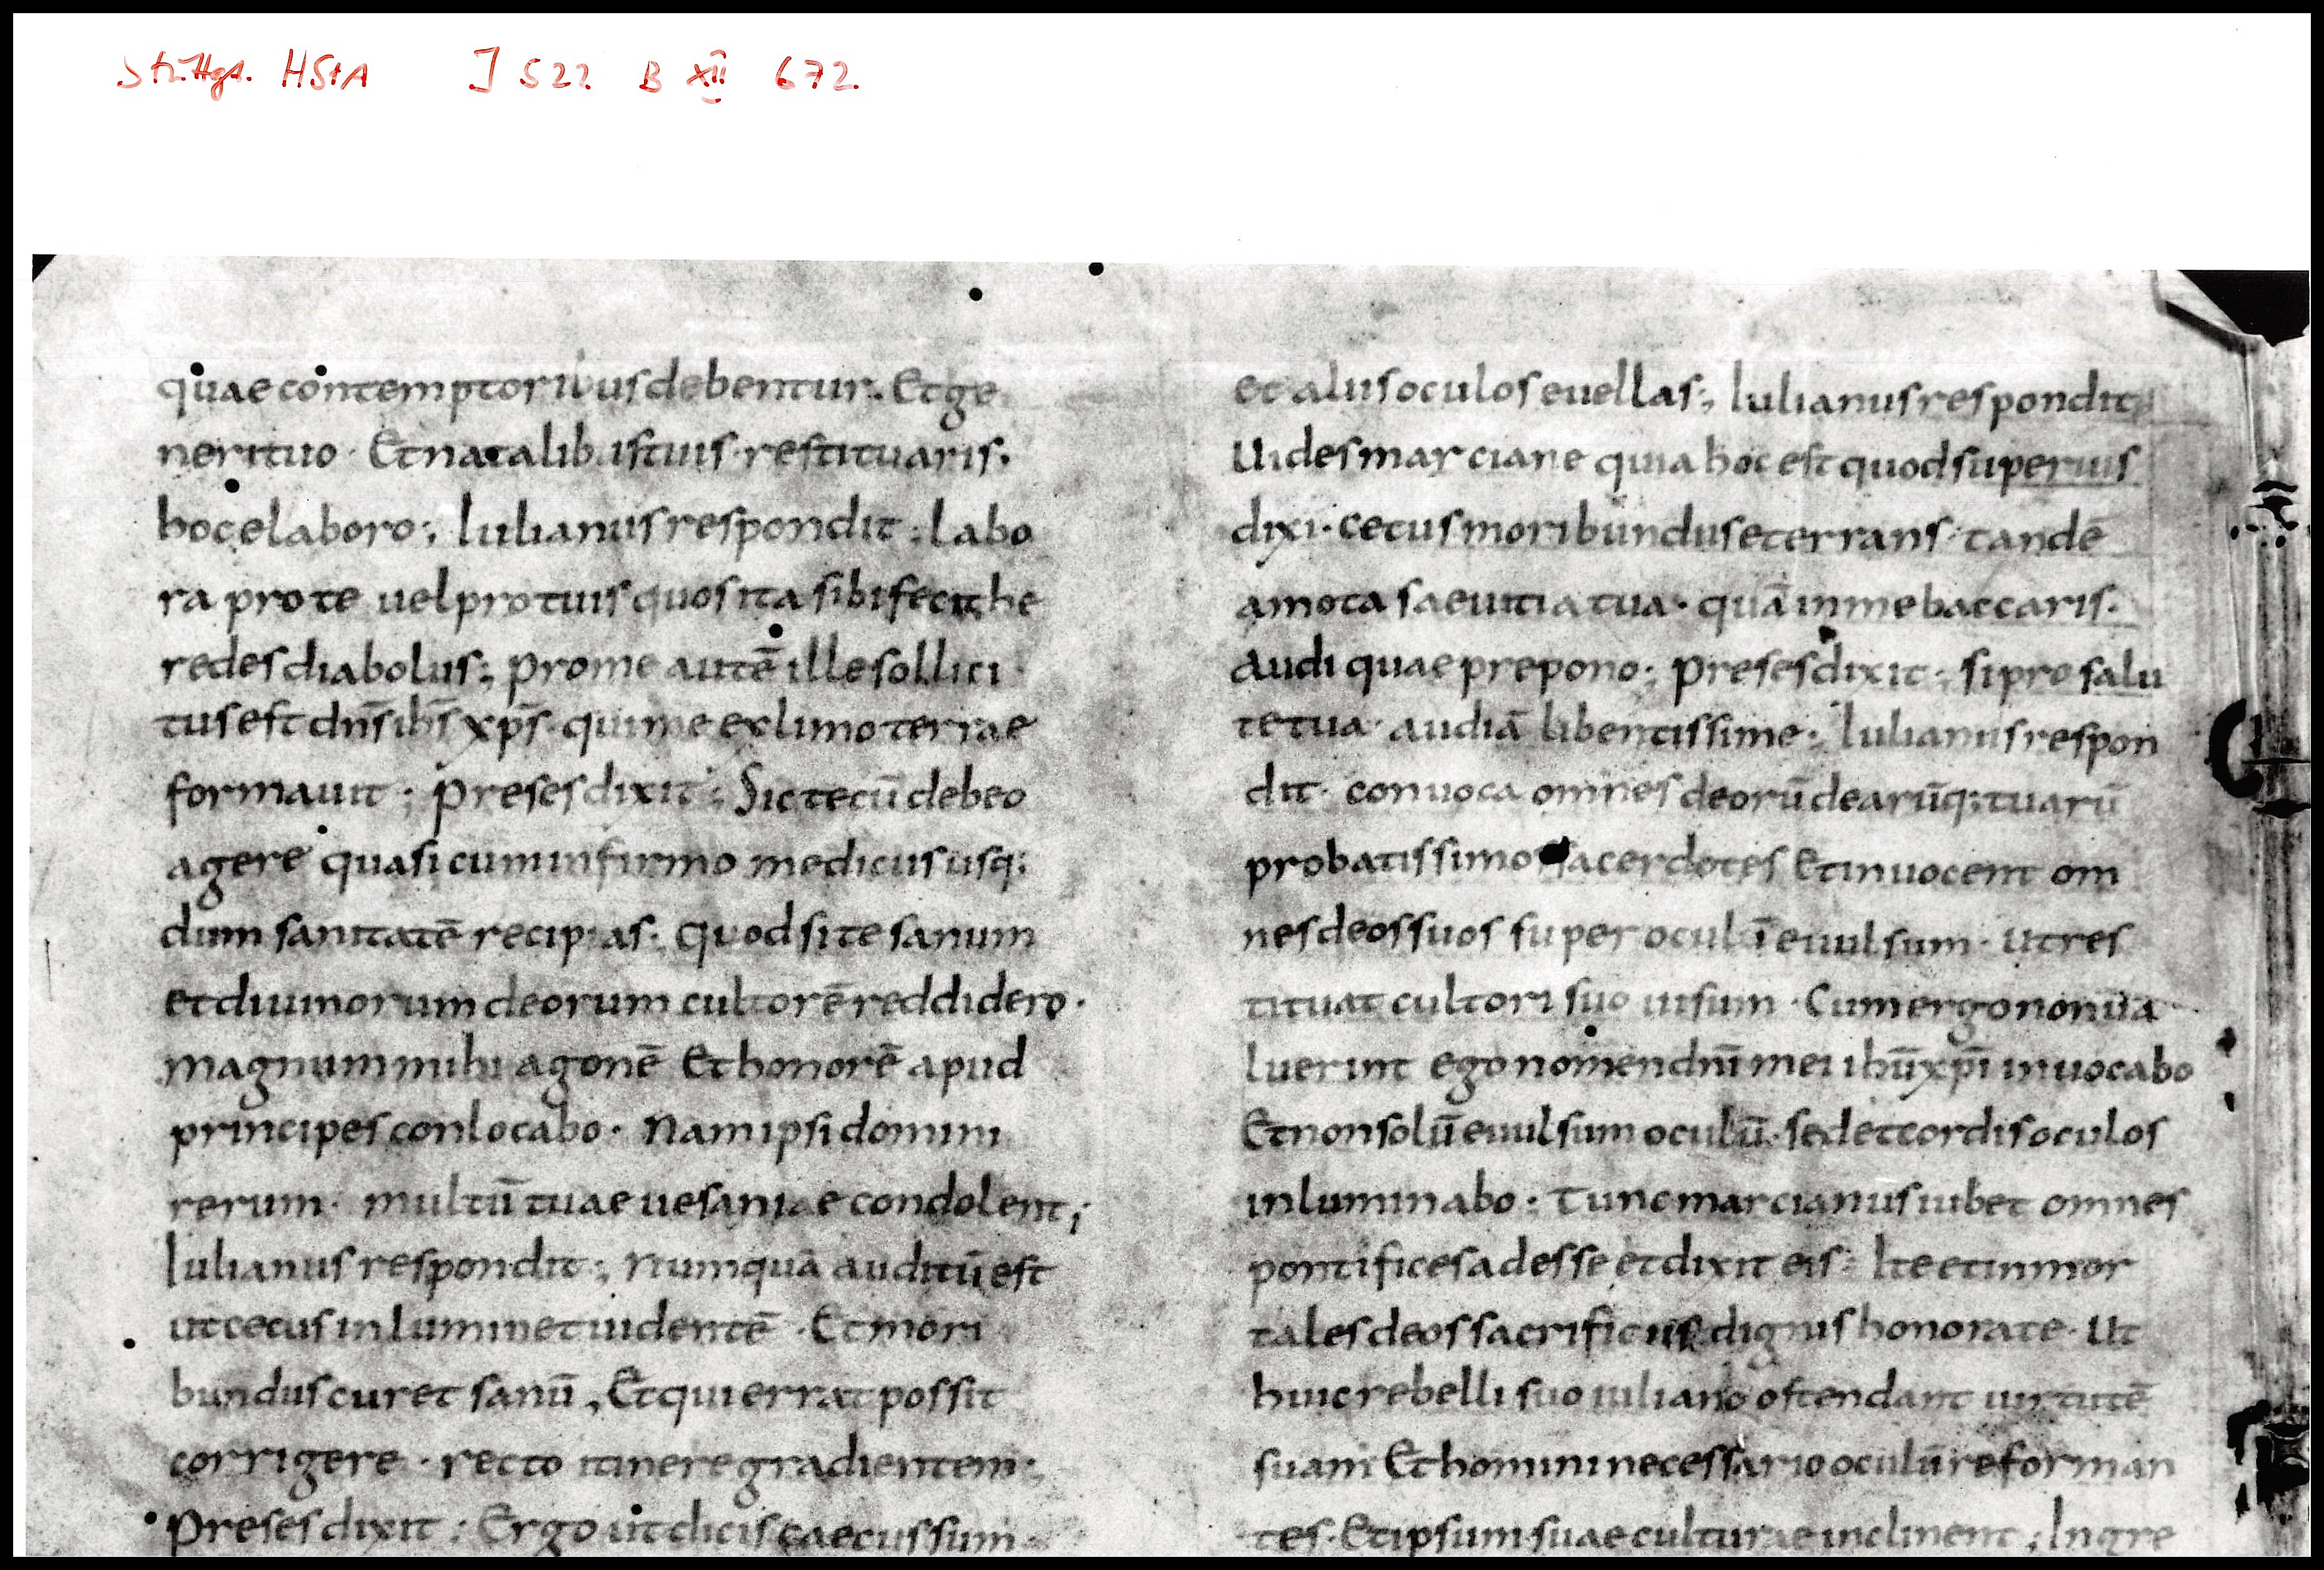 Stuttgt. HStA J 522 B XII 672.
quae contemptoribus debentur. Et ge
neri tuo · Et natalibus tuis · restituaris.
hoc elaboro; Iulianus respondit; labo
ra pro te uel pro tuis quos ita sibi fecit he
redes diabolus; pro me autē ille sollici
tus est dn̄s ih̄s xp̄s · qui me ex limo terrae
formauit; preses dixit; Sic tecū debeo
agere quasi cum infirmo medicus usq;
dum sanitatē recipias. quod si te sanum
et diuinorum deorum cultorē reddidero ·
magnum mihi agonē Et honorē apud
principes conlocabo · Nam ipsi domini
rerum · multū tuae uesaniae condolent;
Iulianus respondit; Numquā auditū est
ut cecus in lumine tuidentē · Et mori
bundus curet sanū, Et qui errat possit
corrigere · recto itinere gradientem;
Preses dixit; Ergo ut dicis caecus sum ·
et aliis oculos euellas; Iulianus respondit
Uides marciane quia hoc est quod superius
dixi · cecus moribundus et errans · tandē
amota saeuitia tua · quā in me baccaris.
Audi quae prepono; preses dixit; si pro salu
te tua · audiā libentissime; Iulianus respon
dit · conuoca omnes deorū dearūq; tuarū
probatissimos sacerdotes Et inuocent om
nes deos suos super oculū euulsum · ut res
tituat cultori suo uisum · Cum ergo non ua
luerint ego nomen dn̄i mei ih̄u xp̄i inuocabo
Et non solū euulsum oculū · sed et cordis oculos
inluminabo; Tunc marcianus iubet omnes
pontifices adesse et dixit eis; Ite et inmor
tales deos sacrificiis dignis honorate · Ut
huic rebelli suo iuliano ostendant uirtutē
suam Et homini necessario oculū reforman
tes · Et ipsum suae culturae inclinent; Ingre